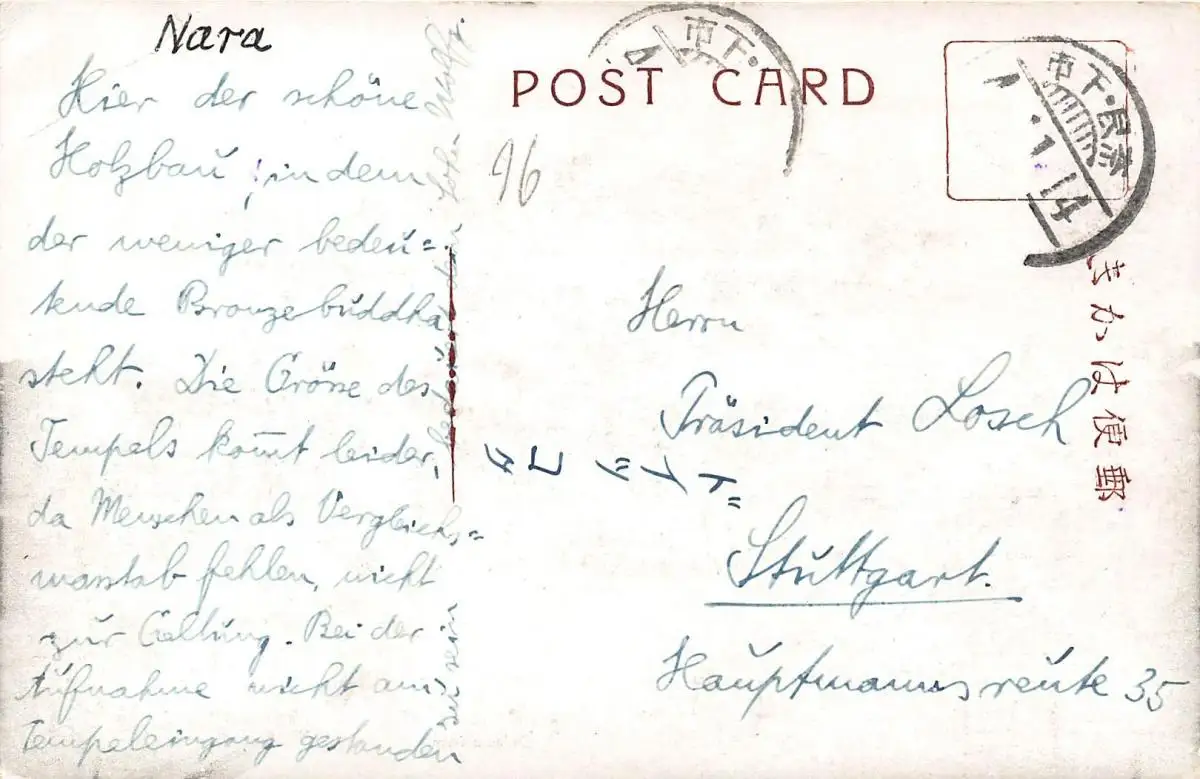 Nara
Hier der schöne
Holzbau, in dem
der weniger bedeu=
tende Bronzebuddha
steht. Die Grösse des
Tempels kommt leider,
da Menschen als Vergleichs=
masstab fehlen, nicht
zur Geltung. Bei der
Aufnahme nicht am
Tempeleingang gestanden
zu sein
POST CARD
96
市下・良奈
14
市下・
きがは便郵
Herrn
Präsident Losch
ドイツ
Stuttgart.
Hauptmannsreute 35